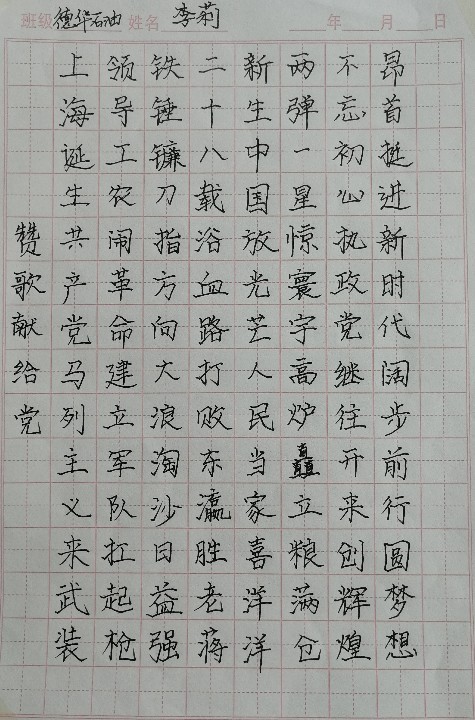 班级 德华石油 姓名 李莉 年 月 日
赞歌献给党
上海诞生共产党马列主义来武装
领导工农闹革命建立军队扛起枪
铁锤镰刀指方向大浪淘沙日益强
二十八载浴血路打败东瀛胜老蒋
新生中国放光芒人民当家喜洋洋
两弹一星惊寰宇高炉矗立粮满仓
不忘初心执政党继往开来创辉煌
昂首挺进新时代阔步前行圆梦想